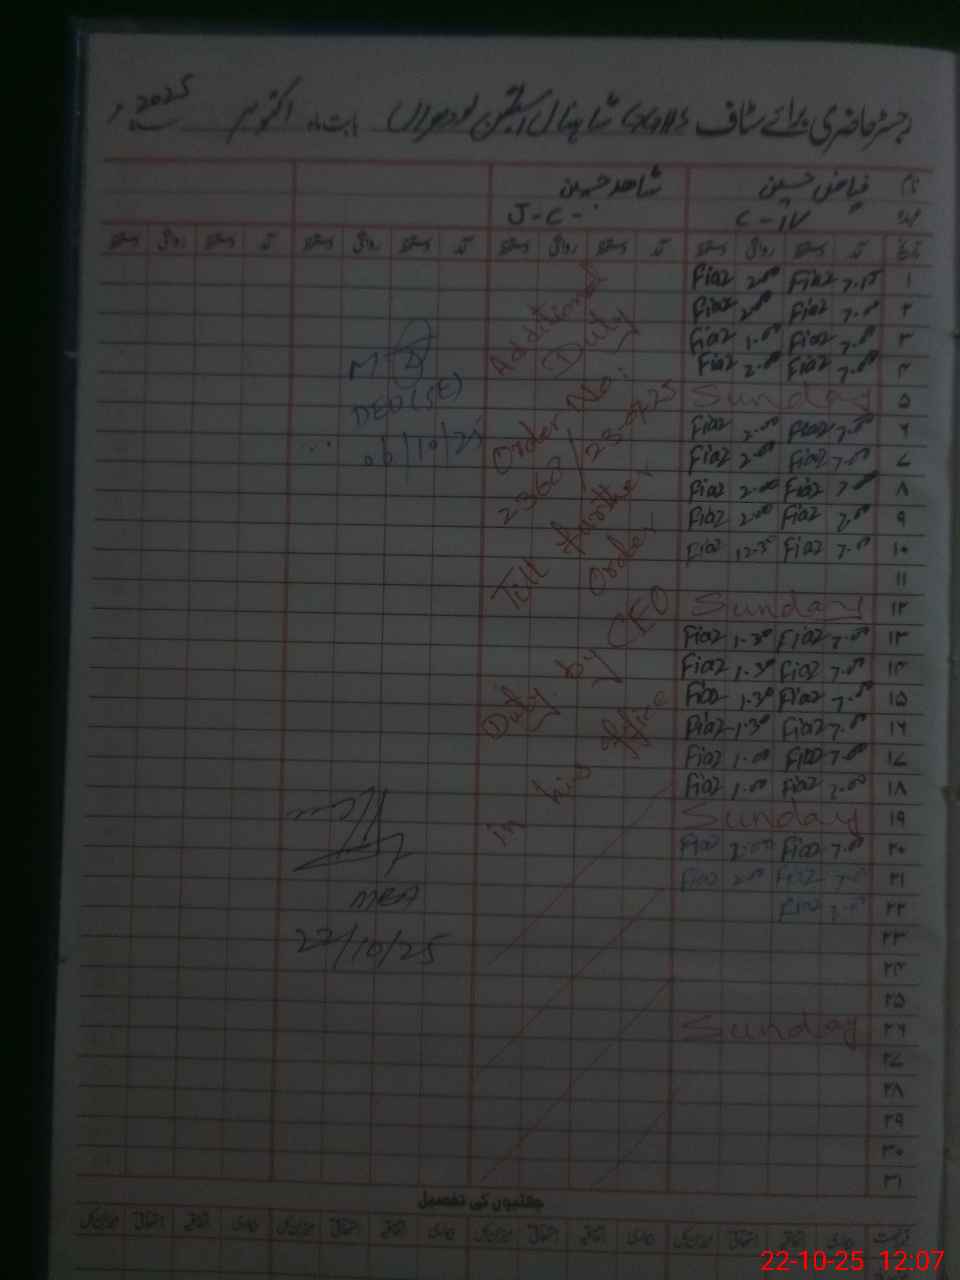 رجسٹر حاضری برائے سٹاف بابت ماہ اکتوبر سنہ 2025ء
نام فیاض حسین شاہد حسین
عہدہ C-IV J-C-
تاریخ آمد دستخط روانگی دستخط آمد دستخط روانگی دستخط آمد دستخط روانگی دستخط آمد دستخط روانگی دستخط
۱ 7.15 Fiaz 2.00 Fiaz
۲ 7.00 Fiaz 2.00 Fiaz
۳ 7.00 Fiaz 1.00 Fiaz
۴ 7.00 Fiaz 2.00 Fiaz
۵ Sunday
۶ Fiaz 2.00 Fiaz
۷ 7.00 Fiaz 2.00 Fiaz
۸ 7.00 Fiaz 2.00 Fiaz
۹ 7.00 Fiaz 2.00 Fiaz
۱۰ 7.00 Fiaz 12.30 Fiaz
۱۱
۱۲ Sunday
۱۳ 7.00 Fiaz 1.30 Fiaz
۱۴ 7.00 Fiaz 1.30 Fiaz
۱۵ 7.00 Fiaz 1.30 Fiaz
۱۶ 7.00 Fiaz 1.30 Fiaz
۱۷ 7.00 Fiaz 1.00 Fiaz
۱۸ 7.00 Fiaz 1.00 Fiaz
۱۹ Sunday
۲۰ 7.00 Fiaz 2.00 Fiaz
۲۱ 7.00 Fiaz 2.00 Fiaz
۲۲ 7.00 Fiaz
۲۳
۲۴
۲۵
۲۶ Sunday
۲۷
۲۸
۲۹
۳۰
۳۱
Additional
Duty
Order No:
2368/23-0725
Till further
Order
Duty by CEO
in his office
DEO (SE)
06/10/25
MEA
22/10/25
چھٹیوں کی تفصیل
22-10-25 12:07